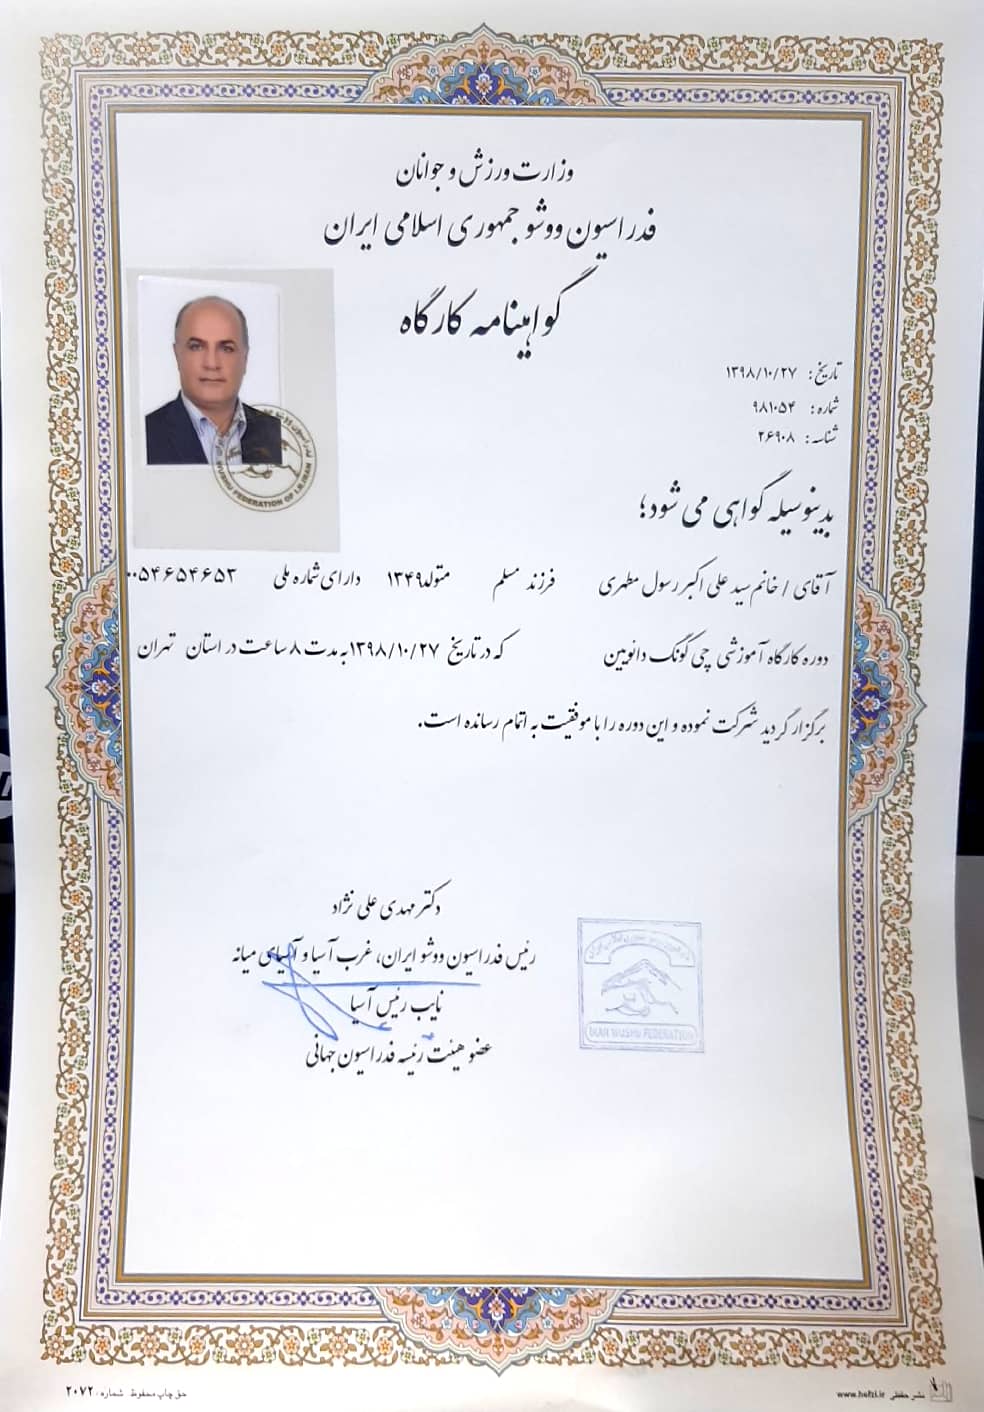 وزارت ورزش و جوانان
فدراسیون ووشو جمهوری اسلامی ایران
گواهینامه کارگاه
تاریخ: ۱۳۹۸/۱۰/۲۷
شماره: ۹۸۱۰۵۴
شناسه: ۲۶۹۰۸
بدینوسیله گواهی می شود؛
آقای / خانم سید علی اکبر رسول مطهری فرزند مسلم متولد ۱۳۴۹ دارای شماره ملی ۰۰۵۴۶۵۴۶۵۳
دوره کارگاه آموزشی چی گونگ دائویین که در تاریخ ۱۳۹۸/۱۰/۲۷ به مدت ۸ ساعت در استان تهران
برگزار گردید شرکت نموده و این دوره را با موفقیت به اتمام رسانده است.
دکتر مهدی علی نژاد
رئیس فدراسیون ووشو ایران، غرب آسیا و آسیای میانه
نایب رئیس آسیا
عضو هیئت رئیسه فدراسیون جهانی
WUSHU FEDERATION OF I.R.IRAN
I.R.IRAN WUSHU FEDERATION
حق چاپ محفوظ شماره: ۲۰۷۲
نشر حفظی www.hefzi.ir